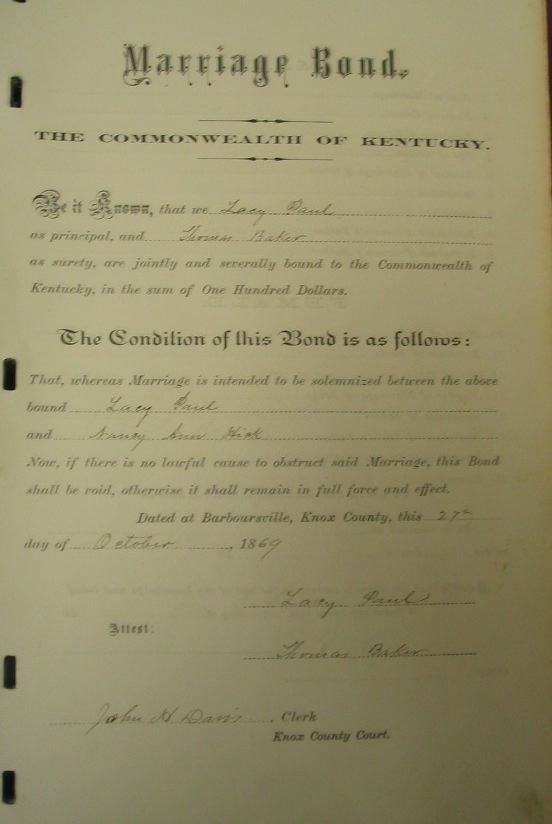 Marriage Bond.
THE COMMONWEALTH OF KENTUCKY.
Be it Known, that we Lacy Paul
as principal, and Thomas Baker
as surety, are jointly and severally bound to the Commonwealth of
Kentucky, in the sum of One Hundred Dollars.
The Condition of this Bond is as follows:
That, whereas Marriage is intended to be solemnized between the above
bound Lacy Paul
and Nancy Ann Hick
Now, if there is no lawful cause to obstruct said Marriage, this Bond
shall be void, otherwise it shall remain in full force and effect.
Dated at Barboursville, Knox County, this 27th
day of October, 1869
Lacy Paul
Attest:
Thomas Baker
John H Davis, Clerk
Knox County Court.